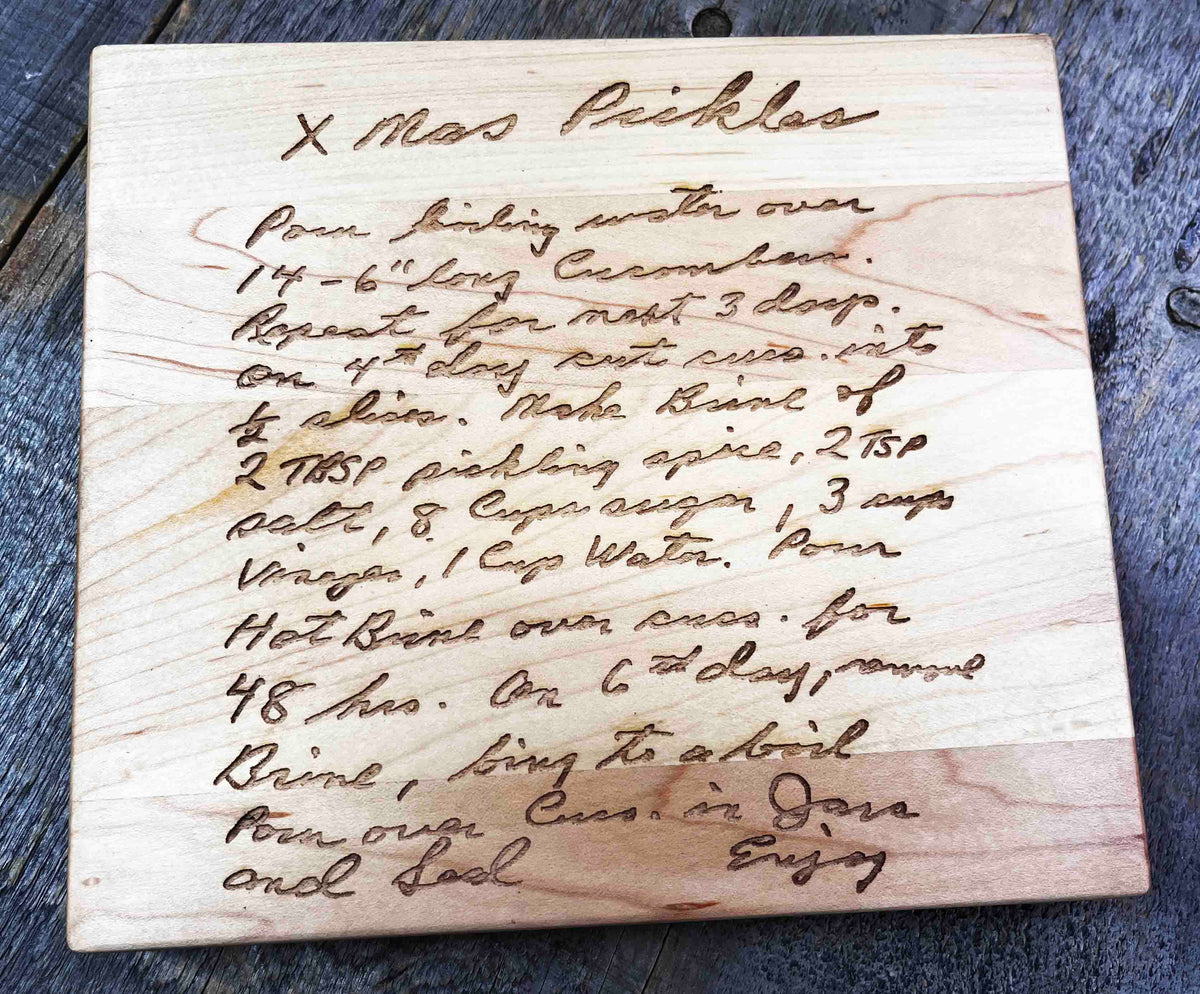 X Mas Pickles
Pour boiling water over
14 - 6" long Cucumbers.
Repeat for next 3 days.
on 4th day cut cucs. into
½ slices. Make Brine of
2 TBSP pickling spice, 2 TSP
salt, 8 Cups sugar, 3 cups
Vinegar, 1 Cup Water. Pour
Hot Brine over cucs. for
48 hrs. On 6th day, remove
Brine, bring to a boil
Pour over Cucs. in Jars
and Seal Enjoy